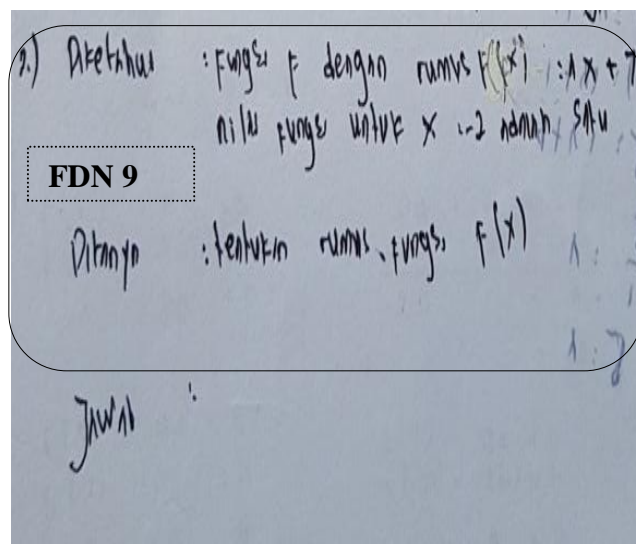 2.) Diketahui : Fungsi F dengan rumus F(x) : ax + 7
nilai fungsi untuk x : -2 adalah satu
FDN 9
Ditanya : tentukan rumus fungsi F(x)
Jawab :